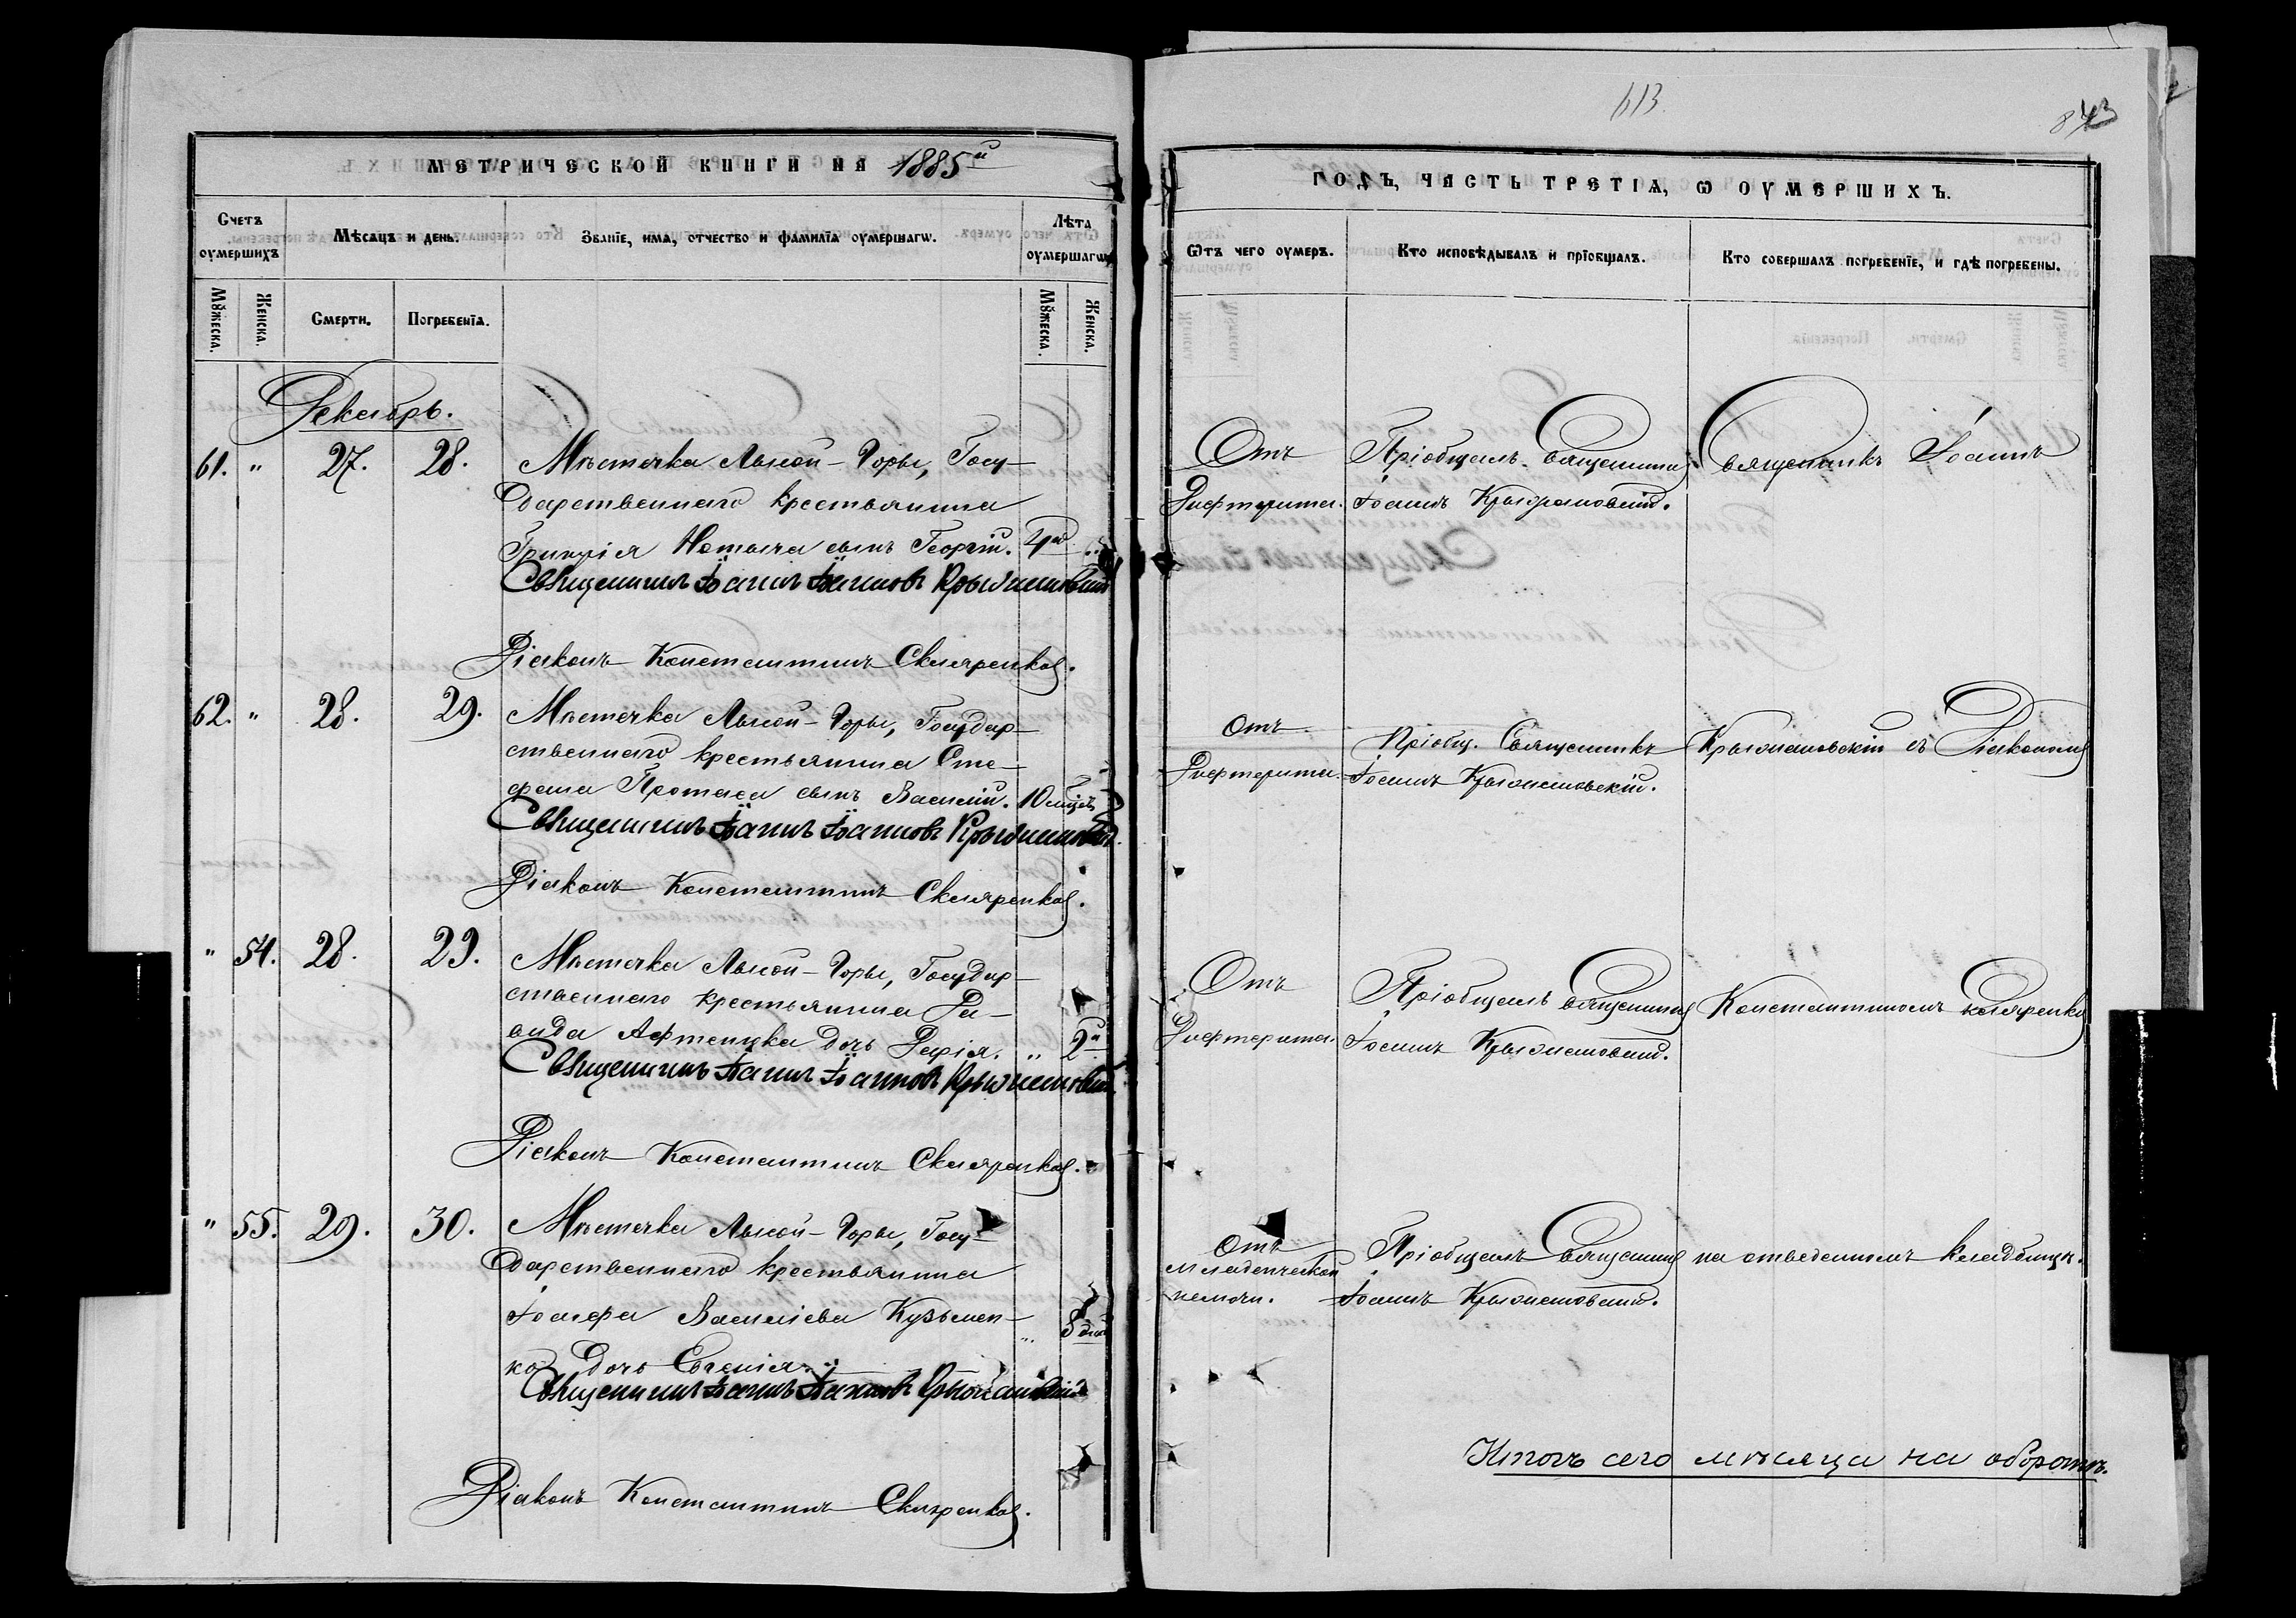 МЕТРИЧЕСКОЙ КНИГИ НА 1885й
Счетъ оумершихъ
Мѣсяцъ и день.
Званїе, има, отчество и фамилїа оумершагѡ.
Лѣта оумершагѡ
Мꙋжеска.
Женска.
Смерти.
Погребенїа.
Мꙋжеска.
Женска.
Декабрь.
61. " 27. 28. Мѣстечка Лысой-Горы, Госу-
дарственнаго крестьянина
сынъ Георгій. 4
Священникъ Іоаннъ Іоанновъ Крыжановскій
Діаконъ Константинъ Скляренко.
62. " 28. 29. Мѣстечка Лысой-Горы, Государ-
ственнаго крестьянина Сте-
фана Протаса сынъ Василій. 10 мцевъ
Священникъ Іоаннъ Іоанновъ Крыжановскій
Діаконъ Константинъ Скляренко.
" 54. 28. 29. Мѣстечка Лысой-Горы, Государ-
ственнаго крестьянина Да-
вида дочь Дарія. " 2
Священникъ Іоаннъ Іоанновъ Крыжановскій
Діаконъ Константинъ Скляренко.
" 55. 29. 30. Мѣстечка Лысой-Горы, Госу-
дарственнаго крестьянина
Іосифа Василіева Кузьмен-
ко дочь Евгенія. " 8 дней
Священникъ Іоаннъ Іоанновъ Крыжановскій
Діаконъ Константинъ Скляренко.
613
843
ГОДЪ, ЧАСТЬ ТРЕТІА, Ѡ ОУМЕРШИХЪ.
Ѿтъ чего оумеръ.
Кто исповѣдывалъ и прїобщалъ.
Кто совершалъ погребенїе, и гдѣ погребены.
Отъ Пріобщалъ Священникъ Священникъ Іоаннъ
Дифтерита. Іоаннъ Крыжановскій.
Отъ Пріобщ. Священникъ Крыжановскій съ Діакономъ
Дифтерита. Іоаннъ Крыжановскій.
Отъ Пріобщалъ Священникъ Константиномъ Скляренко
Дифтерита. Іоаннъ Крыжановскій.
Отъ Пріобщалъ Священникъ на отведенномъ кладбищѣ.
младенческой
немочи. Іоаннъ Крыжановскій.
Итогъ сего мѣсяца на оборотѣ.